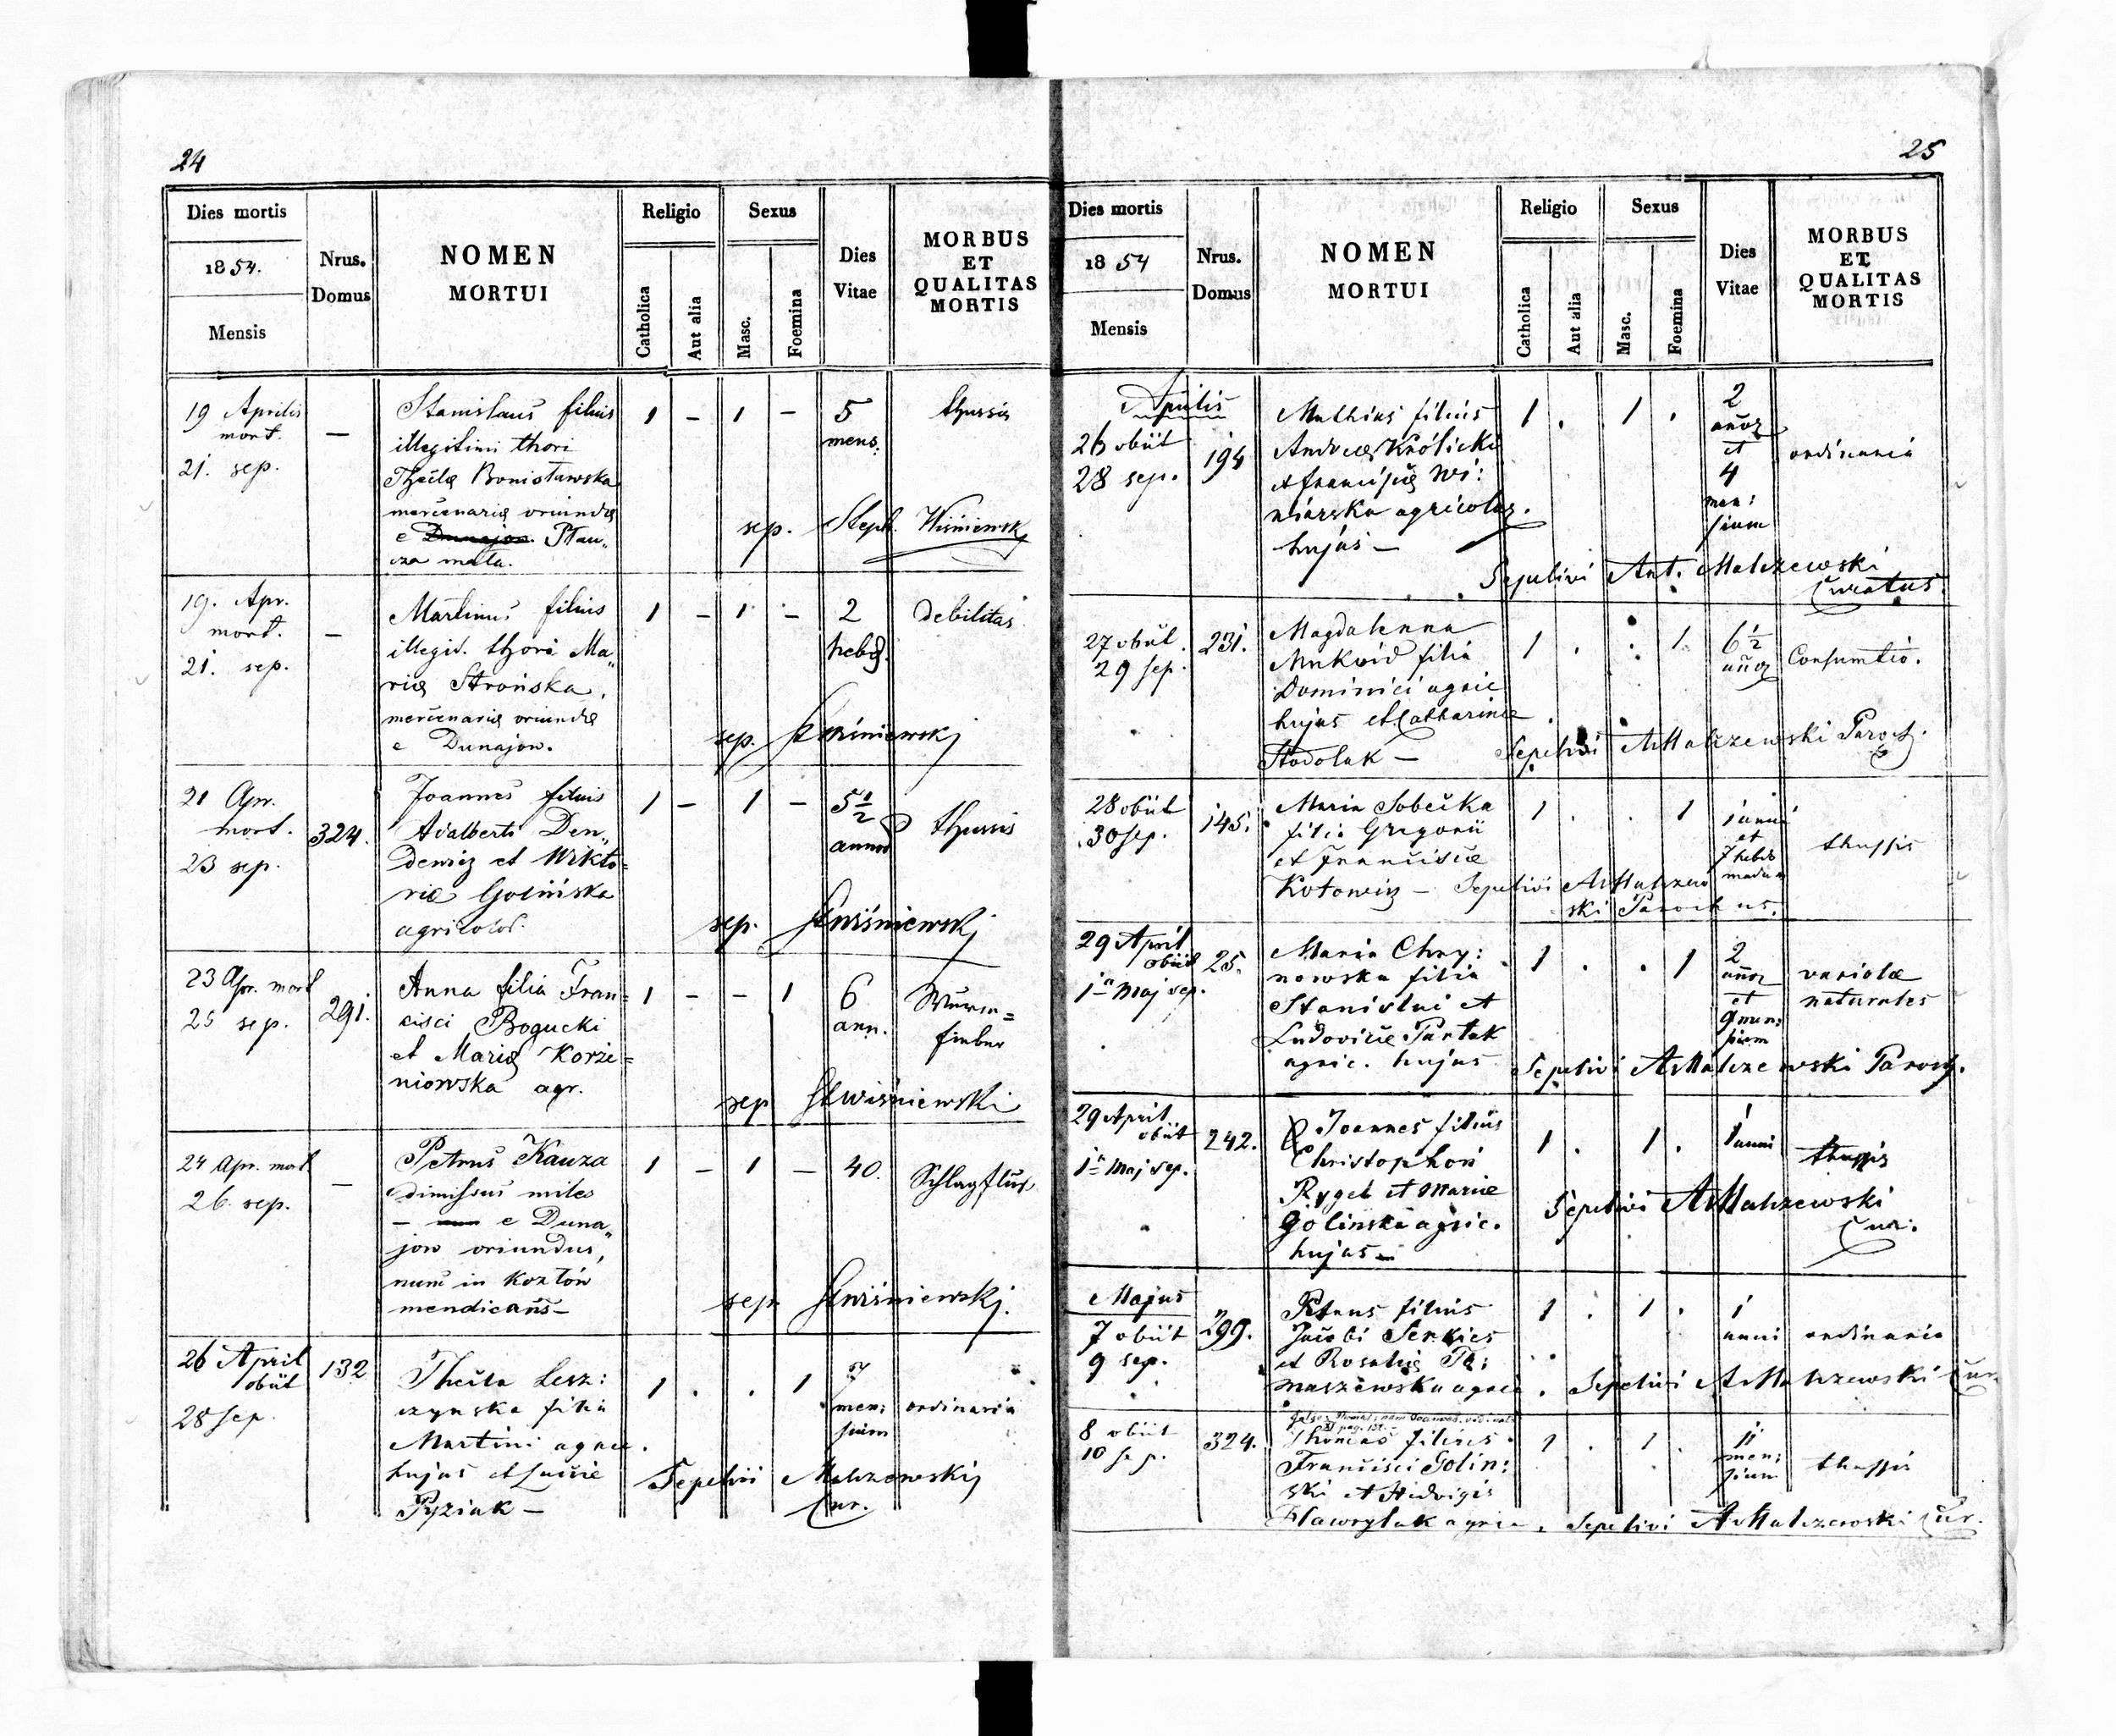 24
Dies mortis
1854.
Mensis
Nrus.
Domus
NOMEN
MORTUI
Religio
Catholica
Aut alia
Sexus
Masc.
Foemina
Dies
Vitae
MORBUS
ET
QUALITAS
MORTIS
19 Aprilis
mort.
21. sep.
—
Stanislaus filius
illegitimi thori
Theclæ Bonisławska
mercenariæ oriundæ
e Dunajow Płau„
cza mała.
1 - 1 -
5
mens.
thussis
sep. Steph. Wiśniewski
19. Apr.
mort.
21. sep.
—
Martinus filius
illegit. thori Ma„
riæ Strońska,
mercenariæ oriundæ
e Dunajow.
1 - 1 -
2
hebd.
Debilitas
sep. StWiśniewskj
21 Apr.
mort.
23 sep.
324.
Joannes filius
Adalberti Den„
dewicz et Wikto=
riæ Golińska
agricolor.
1 - 1 -
5½
annor
thussis
sep. StWiśniewskj
23 Apr. mort
25 sep.
291.
Anna filia Fran=
cisci Bogucki
et Mariæ Korże=
niowska agr.
1 - - 1
6
ann.
Wurm=
fieber
sep StWiśniewski
24 Apr. mort
26. sep.
—
Petrus Kauza
dimissus miles
— e Duna„
jow oriundus,
nunc in Kozłów
mendicans—
1 - 1 -
40.
Schlagfluss
sep StWiśniewskj.
26 April
obiit
28 sep.
132
Thecla Lesz:
czynska filia
Martini agric.
hujas et Luciæ
Pyziak —
1 . . 1
7
men:
sium
ordinaria
Sepelivi Malczewskij
Cur.
25
Dies mortis
1854
Mensis
Nrus.
Domus
NOMEN
MORTUI
Religio
Catholica
Aut alia
Sexus
Masc.
Foemina
Dies
Vitae
MORBUS
ET
QUALITAS
MORTIS
Aprilis
26 obiit
28 sep.
194
Mathias filius
Andreæ Królicki
et Franciscæ Wi:
niarska agricolar.
hujas —
1 . 1 .
2
annor
et
4
men:
sium
ordinaria
Sepelivi Ant. Malczewski
Curatus.
27 obiit.
29 sep.
231.
Magdalenna
filia
Dominici agric
hujas et Catharinæ
Stodolak —
1 . . 1.
6½
annor
Consumtio.
Sepelivi AMalczewski Paroch.
28 obiit
30 sep.
145.
Maria Sobecka
filia Gregorii
et Franciscæ
Kotowicz —
1 . . 1
1 anni
et
7 hebdo
madum
thussis
Sepelivi AMalczew
ski Parochus.
29 April
obiit
1a Maj sep.
25.
Maria Chry:
nowska filia
Stanislai et
Ludovicæ Pantak
agric. hujas
1 . . 1
2
annor
et
9 men:
sium
variolæ
naturales
Sepelivi AMalczewski Paroch.
29 April
obiit
1a Maj sep.
242.
Joannes filius
Christophori
Rygel et Mariæ
Golinska agric.
hujas—
1 . 1 .
1 anni
thussis
Sepelivi AMalczewski
Cur.
Majus
7 obiit
9 sep.
299.
Petrus filius
Jacobi Serkies
et Rosaliæ To:
maszewska agric.
1 . 1 .
1
anni
ordinaria
Sepelivi AMalczewski Cur.
8 obiit
10 sep.
324.
Thomas filius
Francisci Golin:
ski et Hedvigis
Hawrylak agric.
1 . 1 .
11
men:
sium
thussis
Sepelivi AMalczewski Cur.